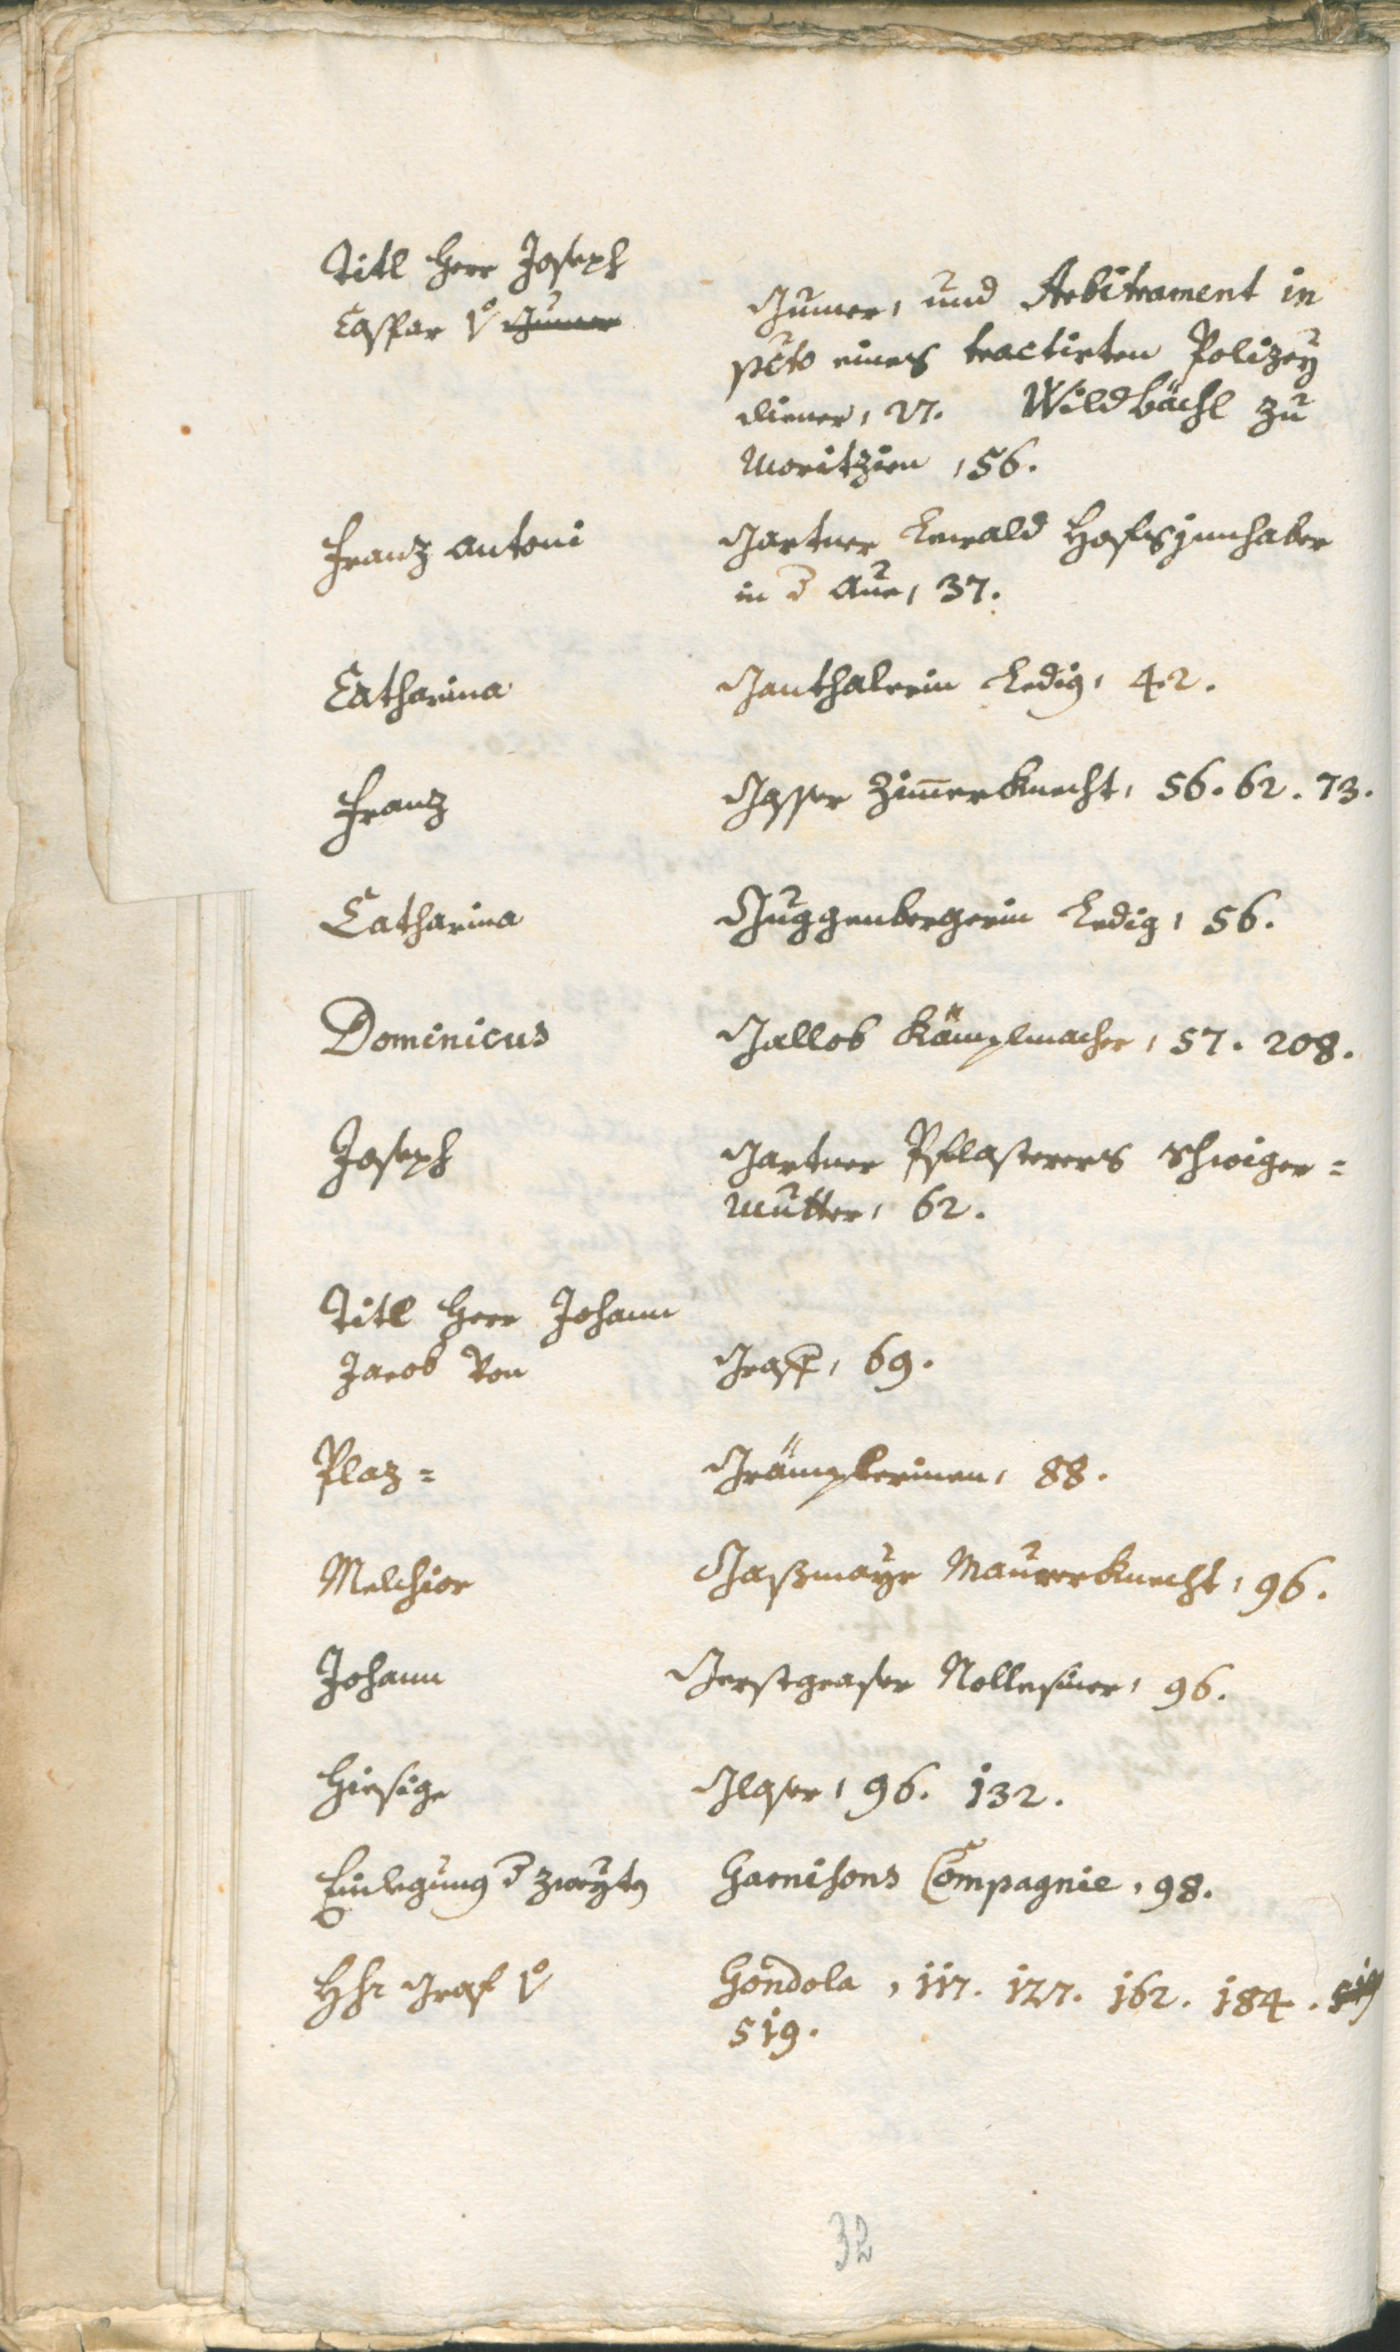 Titl Herr Joseph
Caspar v. Gumer
Gumer, und Arbitrament in
pcto eines tractirten Polizey
diener, 27. Wildbächl zu
Moritzien, 56.
Franz Antoni
Gartner Hofs jnnhaber
in d Aue, 37.
Catharina
Ganthalerin Ledig, 42.
Franz
Gasser Zimmerknecht, 56. 62. 73.
Catharina
Guggenbergerin Ledig, 56.
Dominicus
Gallob Kämplmacher, 57. 208.
Joseph
Gartner Pflasterers Schwiger=
Mutter, 62.
Titl Herr Johann
Jacob Von
Graff, 69.
Plaz=
Grämplerinen, 88.
Melchior
Gaßmayr Maurerknecht, 96.
Johann
Gerstgraser 96.
Hiesige
Glaser, 96. 132.
Einlegung d zweyten
Garnisons Compagnie, 98.
Hhr Graf v.
Gondola, 117. 127. 162. 184. 519
519.
32